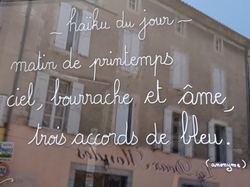 ~ haïku du jour ~
matin de printemps
ciel, bourrache et âme,
trois accords de bleu.
(anonyme)